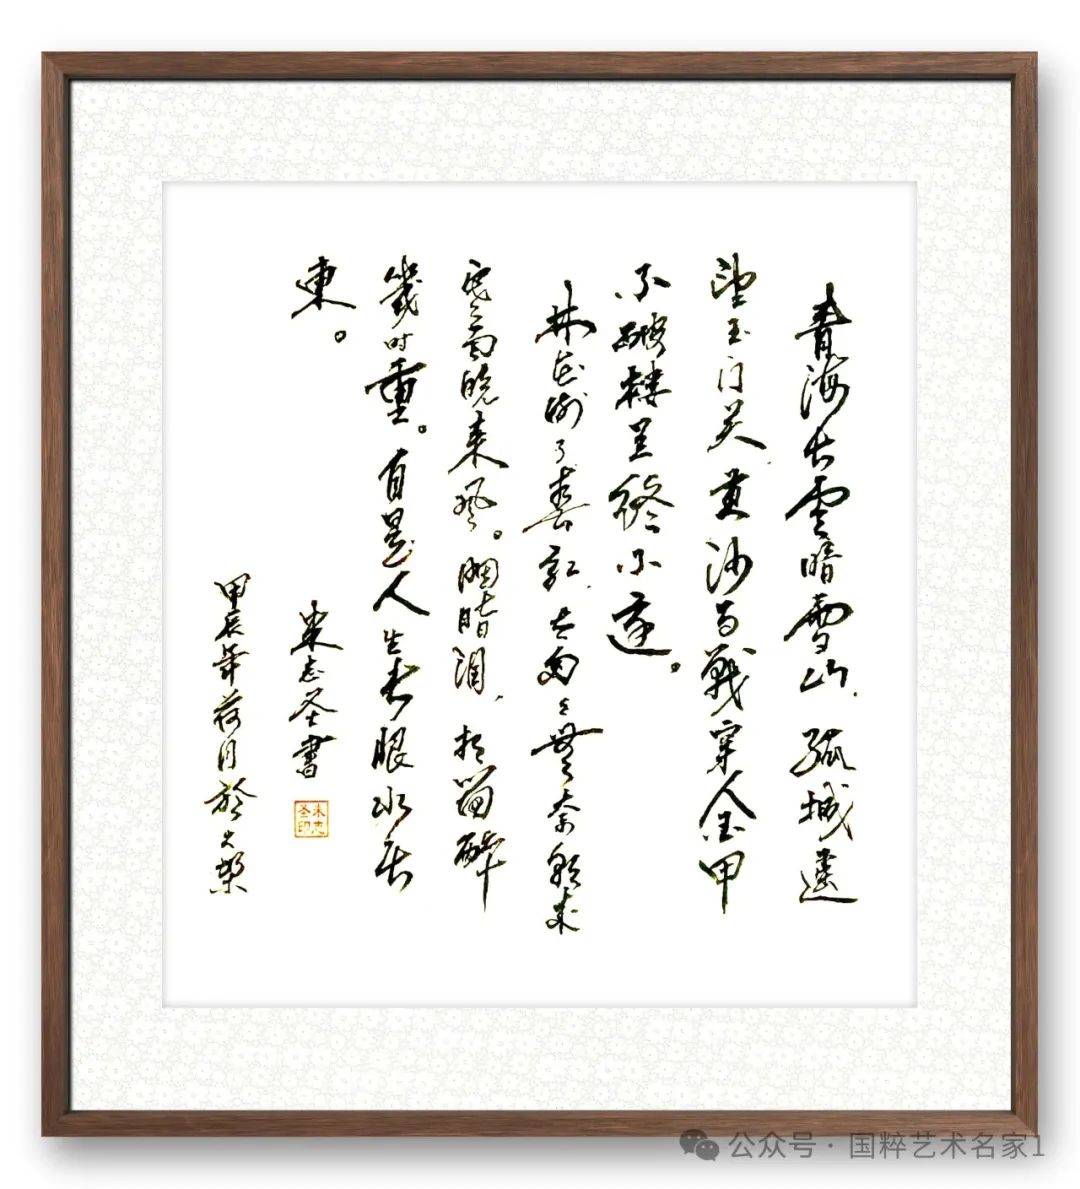 青海长雲暗雪山，孤城遥
望玉门关，黄沙百战穿金甲
不破楼兰终不还。
林花谢了春红，太匆々無奈朝来
寒雨晚来风。胭脂泪，相留醉
幾时重。自是人生长恨水长
東。
朱志圣書
朱志圣印
甲辰年荷月於大梁
公众号 · 国粹艺术名家1